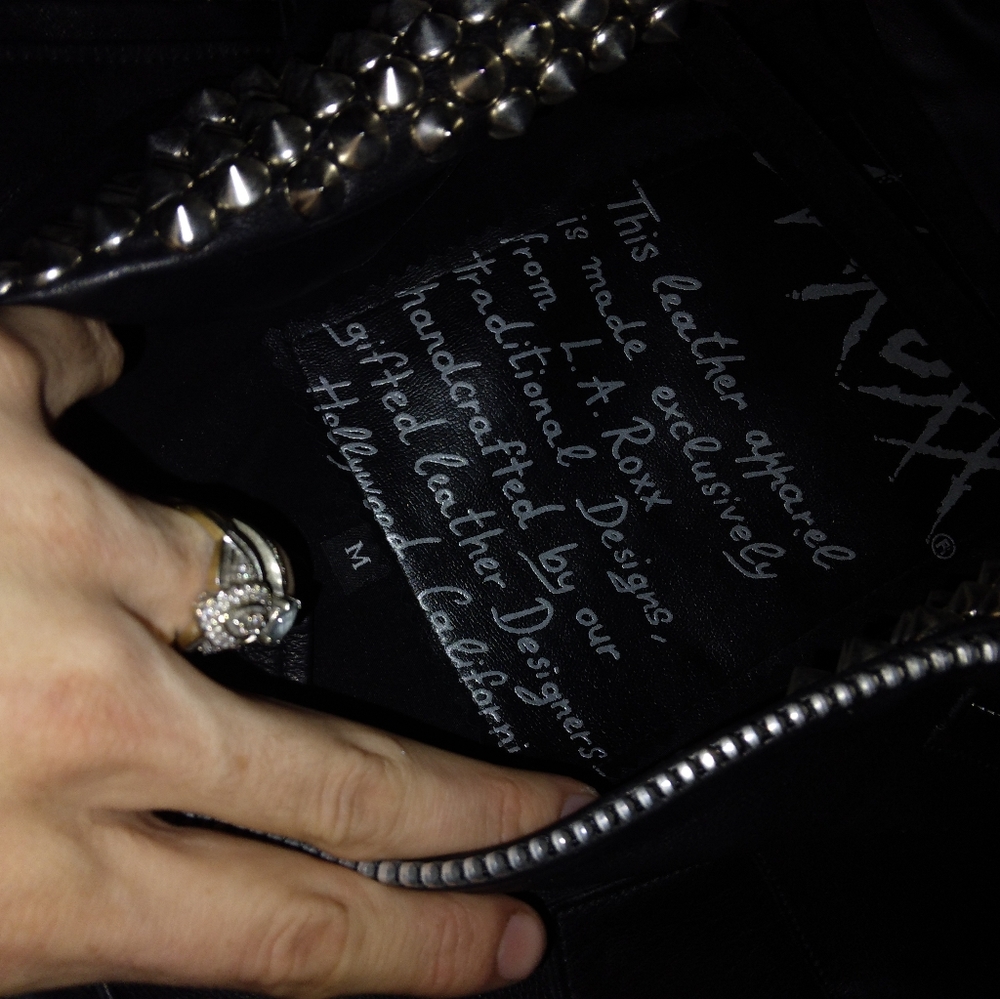 Roxx
®
This leather apparel
is made exclusively
from L.A. Roxx
traditional Designs,
handcrafted by our
gifted leather Designers.
Hollywood Californi
M